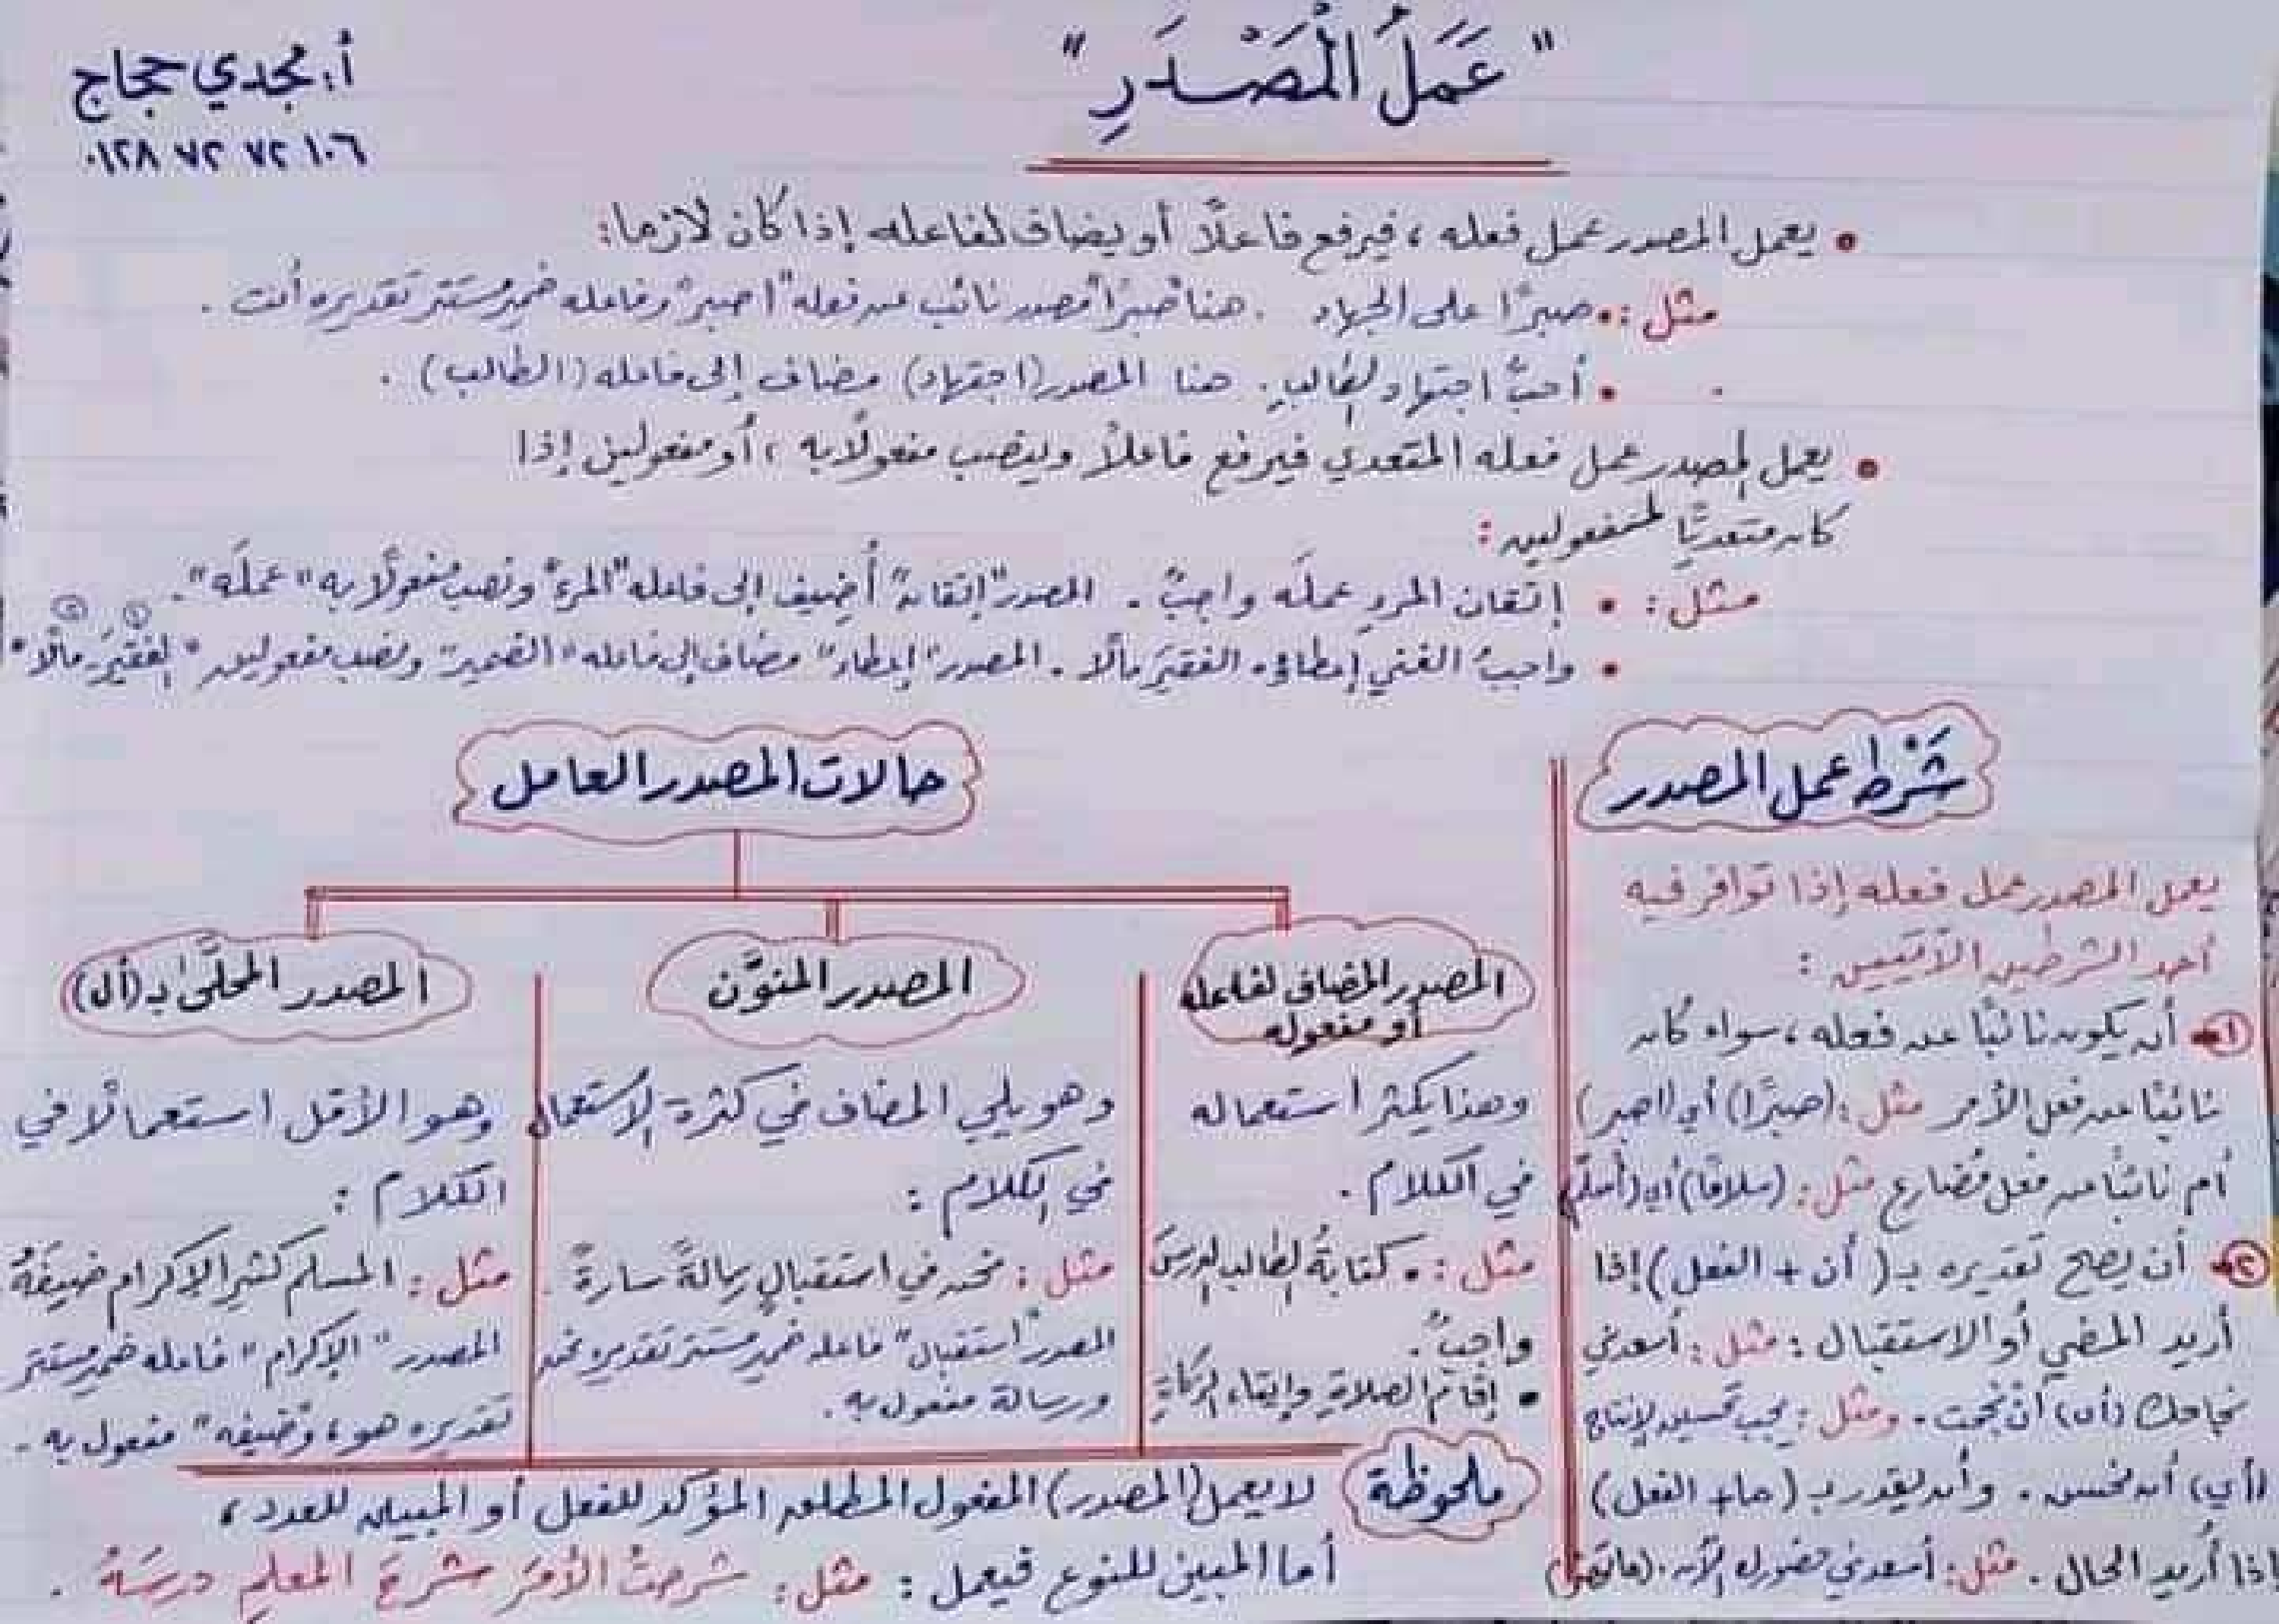 "عَمَلُ الْمَصْدَرِ"
أ: مجدي حجاج
٠١٢٨ ٧٢ ٧٢ ١٠٦
• يعمل المصدر عمل فعله ، فيرفع فاعلًا أو يضاف لفاعله إذا كان لازما:
مثل : • صبرًا على الجهاد . هنا "صبرًا" مصدر نائب عن فعله "اصبر" وفاعله ضمير مستتر تقديره أنت .
• أحبُّ اجتهاد الطالبِ . هنا المصدر (اجتهاد) مضاف إلى فاعله (الطالب) .
• يعمل المصدر عمل فعله المتعدي فيرفع فاعلًا وينصب مفعولًا به ، أو مفعولين إذا
كان متعديًّا لمفعولين :
مثل : • إتقان المرءِ عملَه واجبٌ . المصدر "إتقان" أُضيف إلى فاعله "المرء" ونصب مفعولًا به "عملَه".
• واجبُ الغني إعطاؤه الفقيرَ مالًا . المصدر "إعطاء" مضاف إلى فاعله "الضمير" ونصب مفعولين "الفقيرَ - مالًا" ① ②
شَرْط عمل المصدر
يعمل المصدر عمل فعله إذا توافر فيه
أحد الشرطين الآتيين :
① أن يكون نائبًا عن فعله ، سواء كان
نائبًا عن فعل الأمر مثل : (صبرًا) أي (اصبر)
أم نائبًا عن فعل مُضارع مثل :
② أن يصح تقديره بـ ( أن + الفعل ) إذا
أريد المضي أو الاستقبال : مثل : أسعدني
نجاحك (أي) أن نجحت . ومثل : يجب تحسين الإنتاج
(أي) أن نحسن . وأن يقدر بـ (ما + الفعل)
إذا أُريد الحال . مثل : أسعدني حضورك الآن .
حالات المصدر العامل
المصدر المضاف لفاعله
أو مفعوله
وهذا يكثر استعماله
في الكلام .
مثل : • كتابةُ الطالب الدرسَ
واجبٌ .
• إقام الصلاةِ وإيتاء الزكاةِ
المصدر المنوَّن
وهو يلي المضاف في كثرة الاستعمال
في الكلام :
مثل : نحن في استقبالٍ رسالةً سارةً .
المصدر "استقبال" فاعله ضمير مستتر تقديره نحن
ورسالة مفعول به .
المصدر المحلَّىٰ بـ (أل)
وهو الأقل استعمالًا في
الكلام :
مثل : المسلم كثير الإكرام ضيفَهُ
المصدر "الإكرام" فاعله ضمير مستتر
تقديره هو ، و"ضيفه" مفعول به .
ملحوظة
لا يعمل (المصدر) المفعول المطلق المؤكد للفعل أو المبين للعدد ،
أما المبين للنوع فيعمل : مثل : شرحتُ الأمرَ شرحَ المعلمِ درسَهُ .